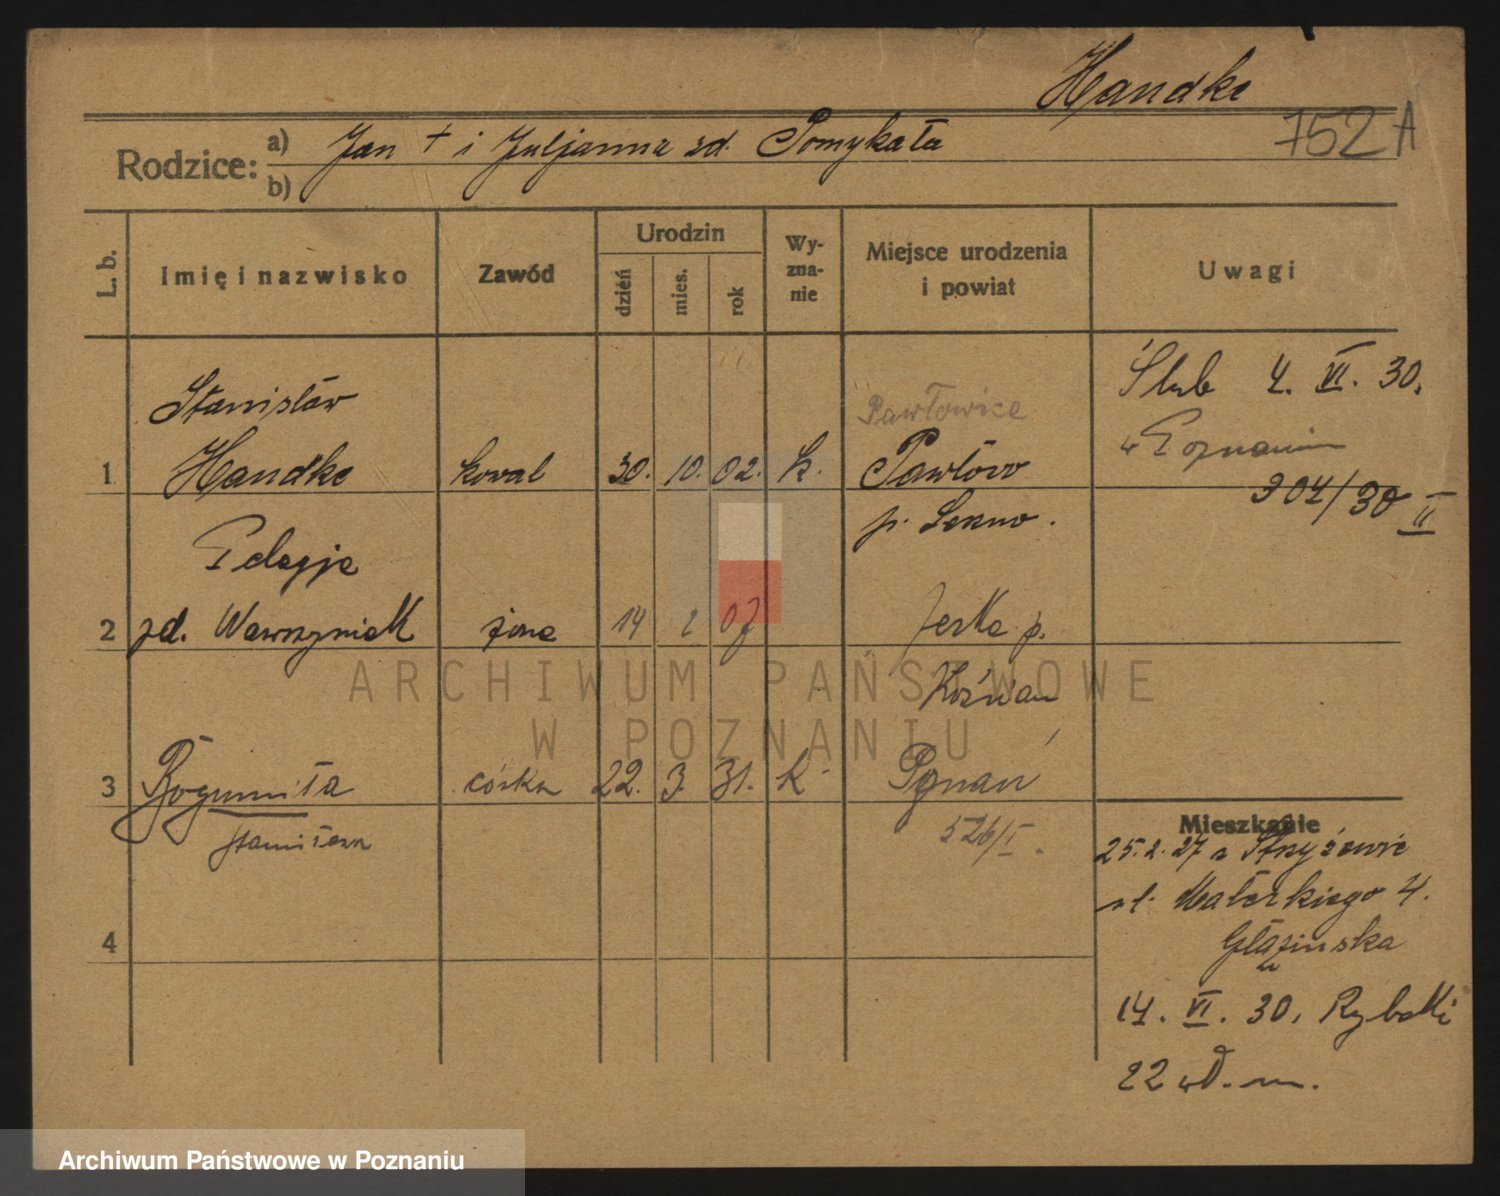 Handke
752 A
Rodzice: a) Jan + i Juljanna zd. Pomykała
b)
L. b.
Imię i nazwisko
Zawód
Urodzin
dzień
mies.
rok
Wy-
zna-
nie
Miejsce urodzenia
i powiat
Uwagi
Stanisław
Pawłowice
1 Handke kowal 30. 10. 02. k. Pawłowo
p. Leszno.
Ślub 4. VI. 30.
w Poznaniu
304/30 II
Pelagja
2 zd. Wawrzyniak żona 14 2 07 Jerka p.
Kościan
3 Bogumiła córka 22. 3. 31. k Poznań
Stanisława 526/I.
4
Mieszkanie
25. 2. 27 z Strzyżewic
ul. Małeckiego 4.
Glazińska
14. VI. 30. Rybaki
22 wł. m.
ARCHIWUM PAŃSTWOWE
W POZNANIU
Archiwum Państwowe w Poznaniu